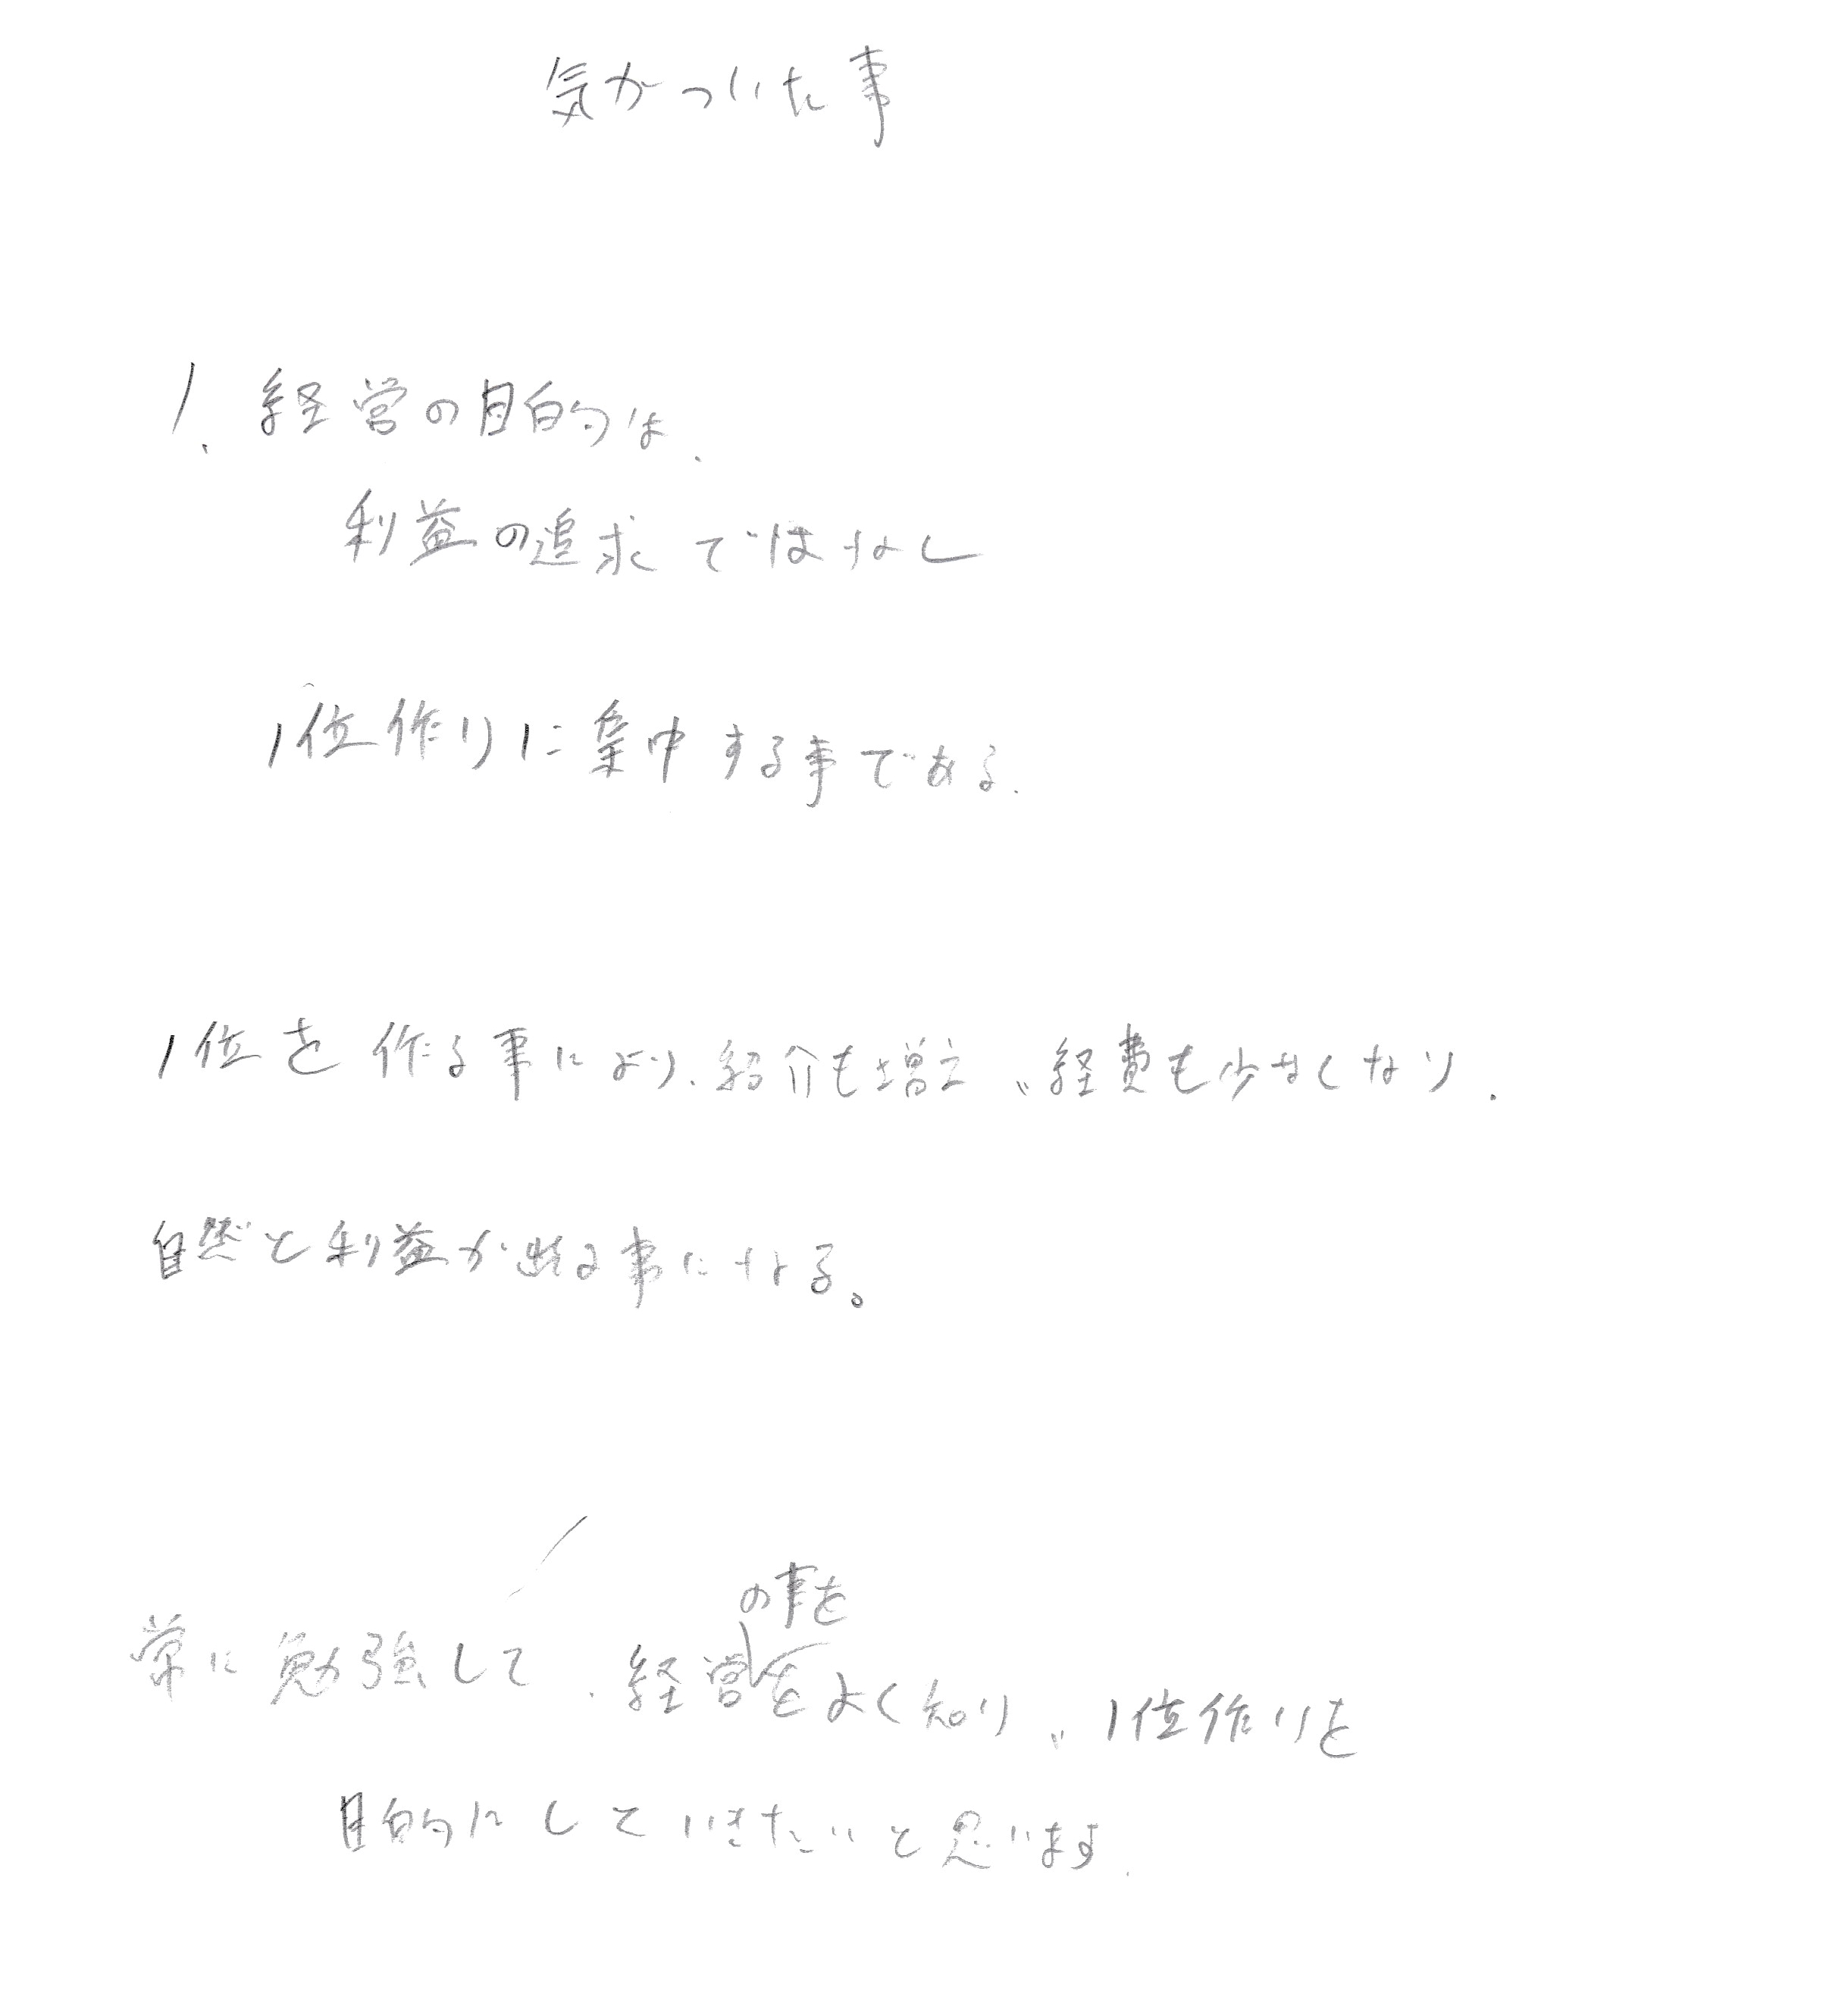 気がついた事
1、経営の目的は、
利益の追求ではなし
1位作りに集中する事である。
1位を作る事により、紹介も増え、経費も少なくなり、
自然と利益が出る事になる。
の事を
常に勉強して、経営をよく知り、1位作りを
目的にしていきたいと思います。